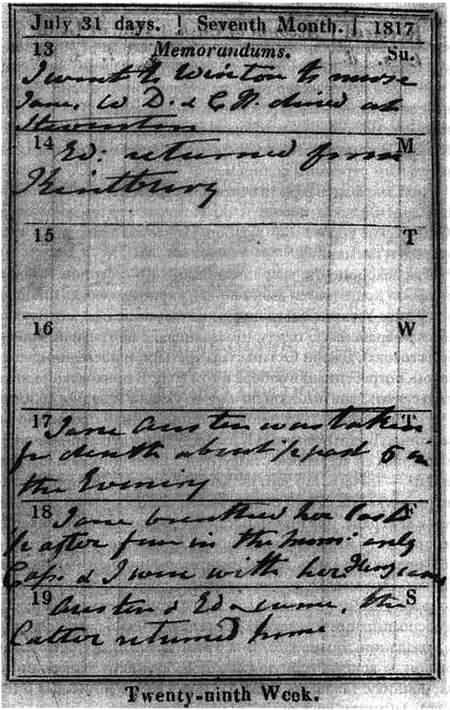 July 31 days. | Seventh Month. | 1817
13 Memorandums. Su.
I went to Winton to nurse
Jane. W D. & C. W. dined at
Steventon
14 Ed: returned from M
Kintbury
15 T
16 W
17 Jane Austen was taken T
for death about ½ past 5 in
the Evening
18 Jane breathed her last F
½ after four in the morn: only
Cass & I were with her Henry came
19 Austen & Ed came, the S
latter returned home
Twenty-ninth Week.